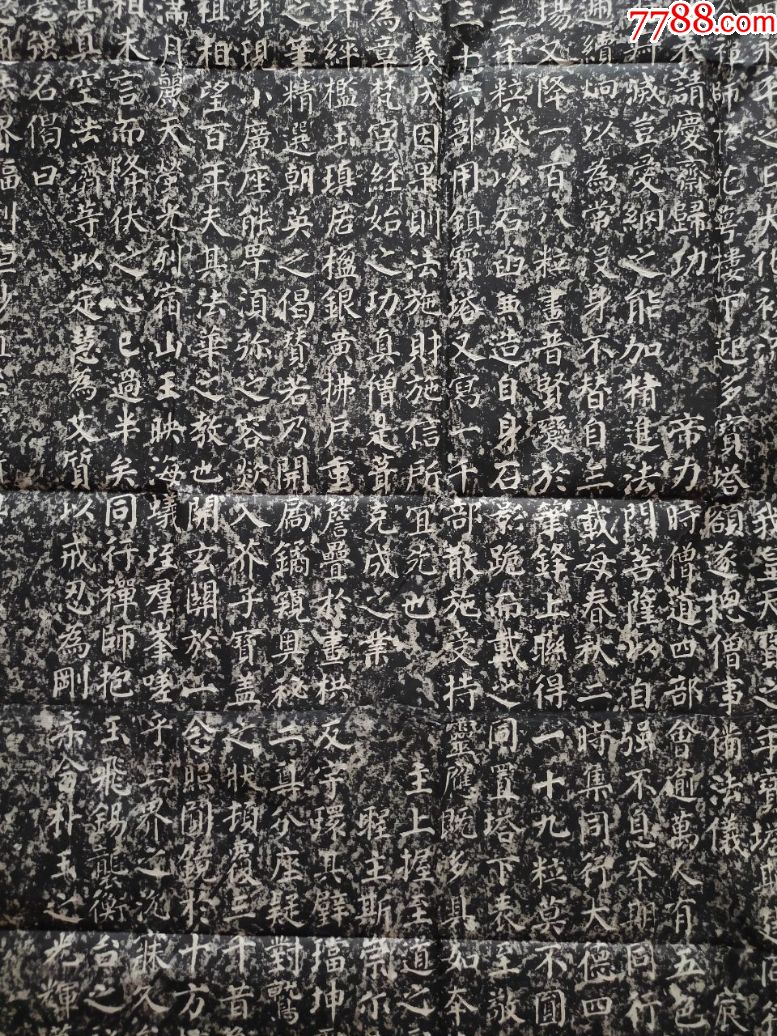 師於花萼樓下迎多寶塔額遂抱僧事備法儀宸
請慶齋歸功帝力時僧道四部會逾萬人有五色
滅豈愛網之能加精進法門菩薩以自強不息本期同行
興續炯以為常及身不替自三載每春秋二時集同行大德四
場又降一百八粒畫普賢變於筆鋒上聯得一十九粒莫不圓
三千粒盛以石函兼造自身石影跪而戴之同置塔下表至敬
三十六部用鎮寶塔又寫一千部散施受持靈應既多具如本
心義成因果則法施財施信所宜先也主上握至道之
為章梵宮經始之功真僧是葺克成之業聖主斯崇尔
玕絳檻玉瑱居楹銀黃拂戶重簷疊於畫栱反宇環其璧璫坤
之筆精選朝英之偈贊若乃開扃鐍窺奧秘二尊分座疑對鷲
身現小廣座能卑須彌之容欻入芥子寶蓋之狀頓覆三千昔
祖相望百年夫其法華之教也開玄關於一念照圓鏡於十方
滿月麗天螢光列宿山王映海蟻垤羣峯嗟乎三界之沉寐久
相大言而降伏之心已過半矣同行禪師抱玉飛錫襲衡台之
真具空法濟等以定慧為文質以戒忍為剛柔含朴玉之光輝
強名偈曰
7788.com